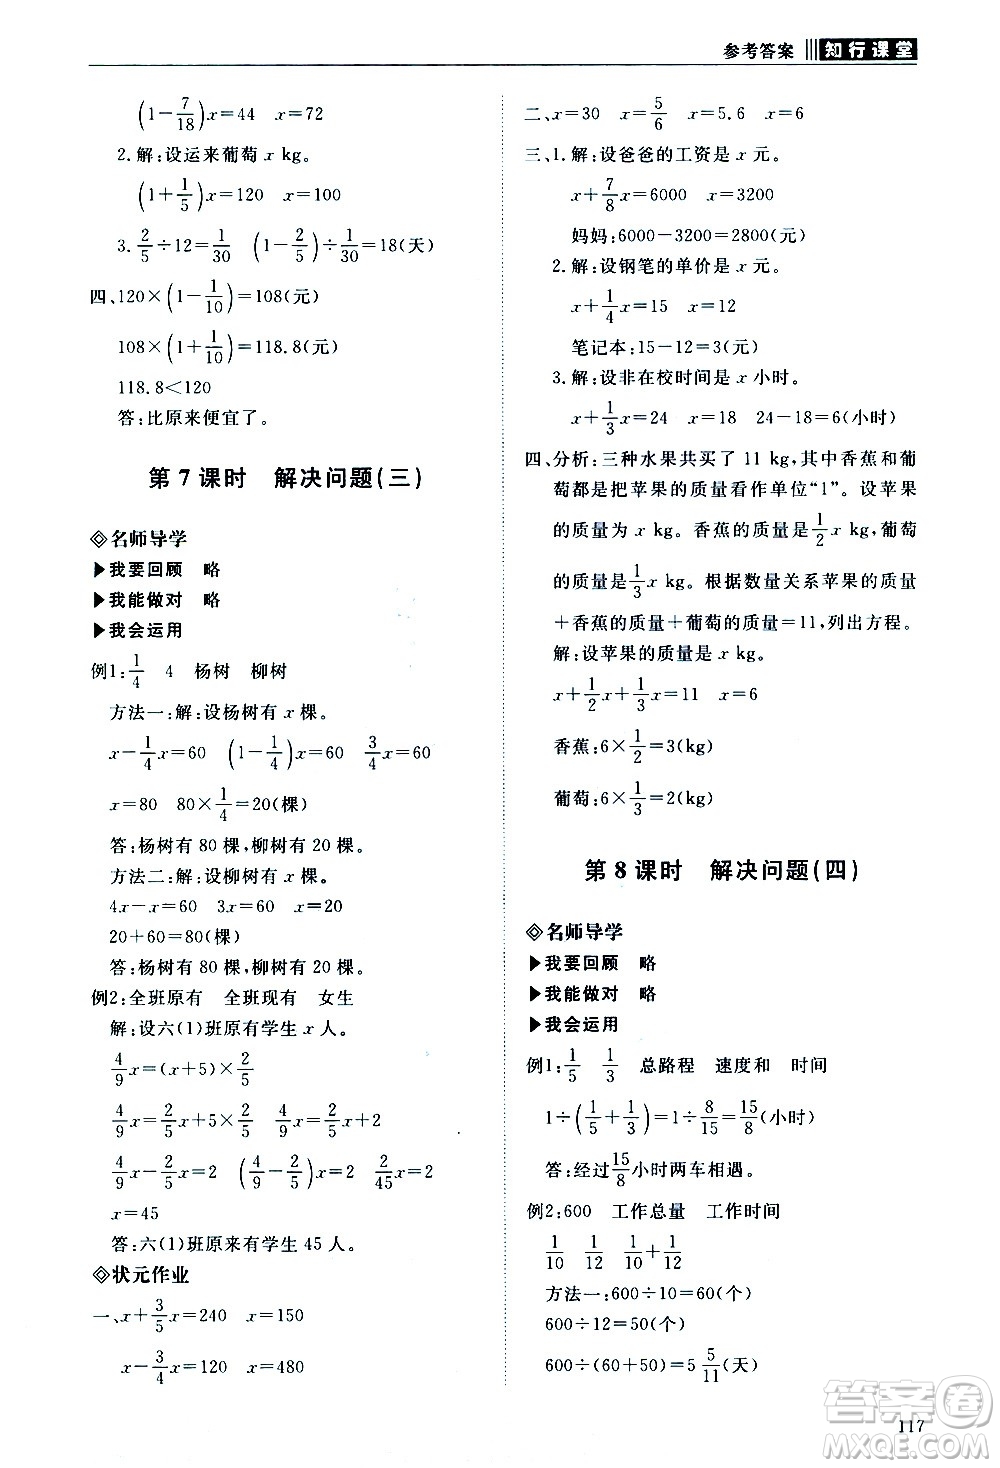 参考答案 知行课堂
(1-7/18)x=44 x=72
2.解:设运来葡萄 x kg。
(1+1/5)x=120 x=100
3. 2/5÷12=1/30 (1-2/5)÷1/30=18(天)
四、120×(1-1/10)=108(元)
108×(1+1/10)=118.8(元)
118.8<120
答:比原来便宜了。
第 7 课时 解决问题(三)
名师导学
▶我要回顾 略
▶我能做对 略
▶我会运用
例1: 1/4 4 杨树 柳树
方法一:解:设杨树有 x 棵。
x-1/4x=60 (1-1/4)x=60 3/4x=60
x=80 80×1/4=20(棵)
答:杨树有 80 棵,柳树有 20 棵。
方法二:解:设柳树有 x 棵。
4x-x=60 3x=60 x=20
20+60=80(棵)
答:杨树有 80 棵,柳树有 20 棵。
例2:全班原有 全班现有 女生
解:设六(1)班原有学生 x 人。
4/9x=(x+5)×2/5
4/9x=2/5x+5×2/5 4/9x=2/5x+2
4/9x-2/5x=2 (4/9-2/5)x=2 2/45x=2
x=45
答:六(1)班原来有学生 45 人。
状元作业
一、x+3/5x=240 x=150
x-3/4x=120 x=480
二、x=30 x=5/6 x=5.6 x=6
三、1.解:设爸爸的工资是 x 元。
x+7/8x=6000 x=3200
妈妈:6000-3200=2800(元)
2.解:设钢笔的单价是 x 元。
x+1/4x=15 x=12
笔记本:15-12=3(元)
3.解:设非在校时间是 x 小时。
x+1/3x=24 x=18 24-18=6(小时)
四、分析:三种水果共买了 11 kg,其中香蕉和葡
萄都是把苹果的质量看作单位“1”。设苹果
的质量为 x kg。香蕉的质量是1/2x kg,葡萄
的质量是1/3x kg。根据数量关系苹果的质量
+香蕉的质量+葡萄的质量=11,列出方程。
解:设苹果的质量是 x kg。
x+1/2x+1/3x=11 x=6
香蕉:6×1/2=3(kg)
葡萄:6×1/3=2(kg)
第 8 课时 解决问题(四)
名师导学
▶我要回顾 略
▶我能做对 略
▶我会运用
例1: 1/5 1/3 总路程 速度和 时间
1÷(1/5+1/3)=1÷8/15=15/8(小时)
答:经过15/8小时两车相遇。
例2:600 工作总量 工作时间
1/10 1/12 1/10+1/12
方法一:600÷10=60(个)
600÷12=50(个)
600÷(60+50)=5 5/11(天)
117
答案圈
MXQE.COM